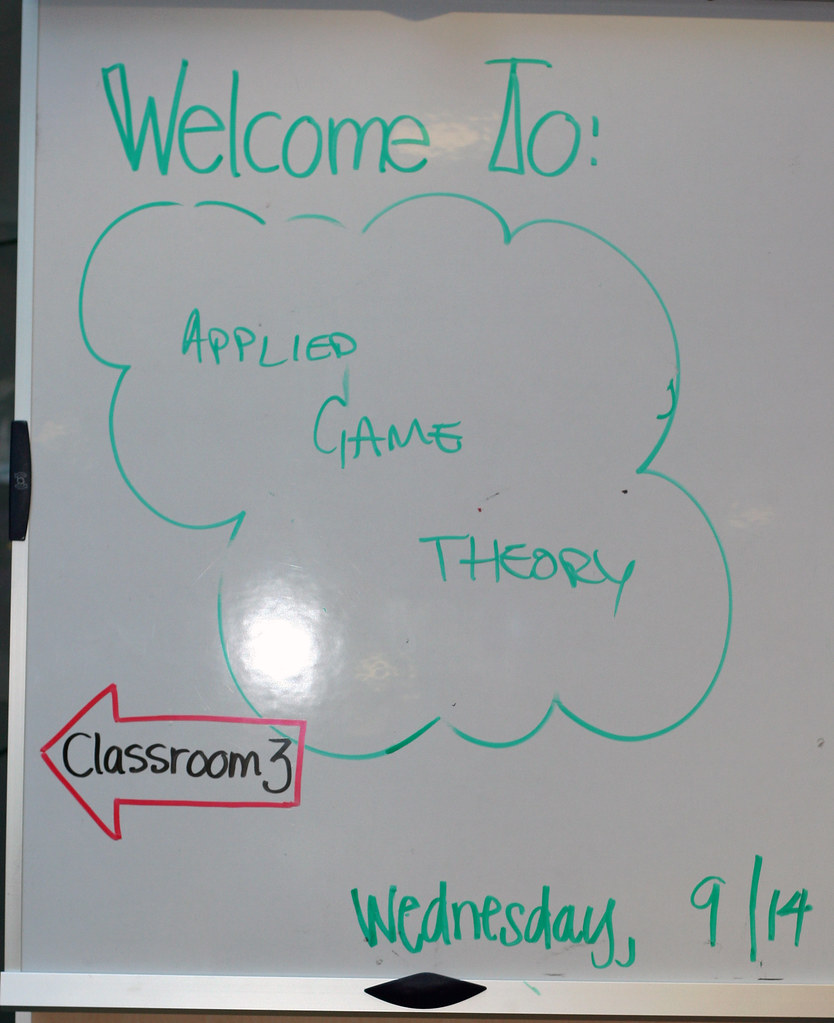 Welcome To:
APPLIED
GAME
THEORY
Classroom 3
Wednesday, 9/14